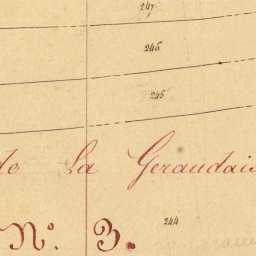 247
246
245
de La Geraudais
N.º 3.
244